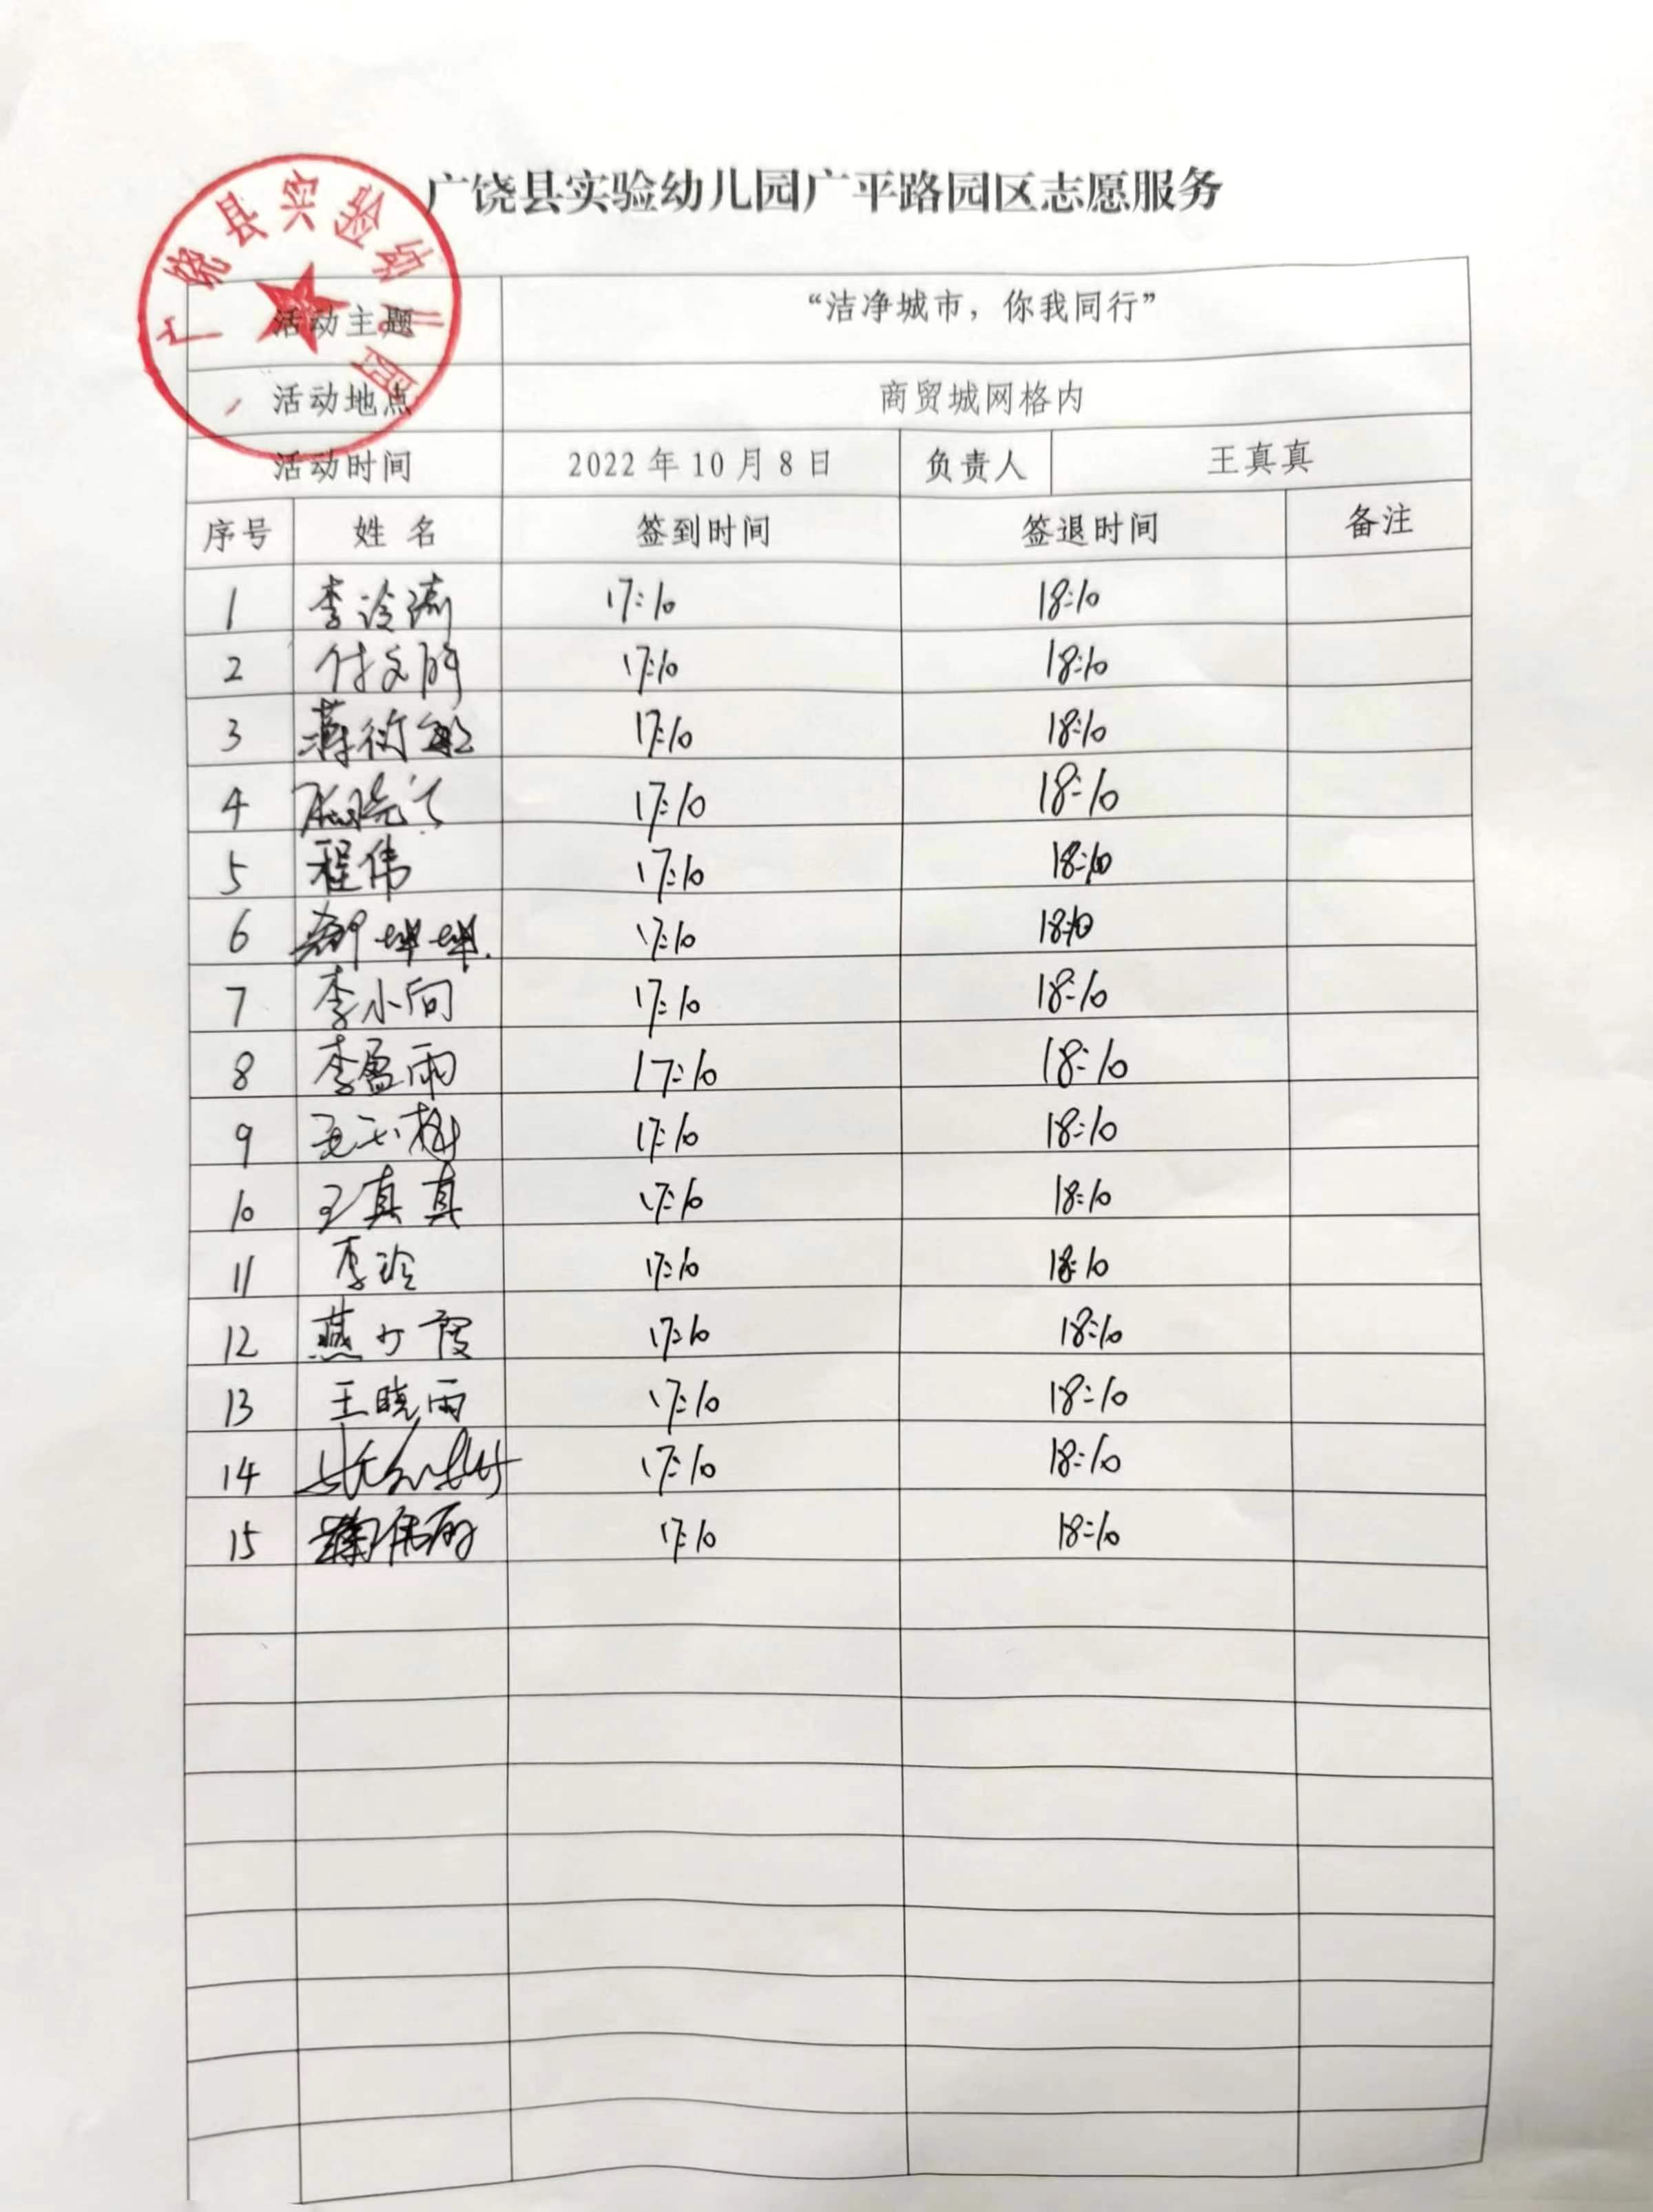 广饶县实验幼儿园广平路园区志愿服务
广饶县实验幼儿园
活动主题 “洁净城市，你我同行”
活动地点 商贸城网格内
活动时间 2022年10月8日 负责人 王真真
序号 姓名 签到时间 签退时间 备注
1 李 17:10 18:10
2 付文 17:10 18:10
3 17:10 18:10
4 17:10 18:10
5 程伟 17:10 18:10
6 17:10 18:10
7 李小向 17:10 18:10
8 李盈雨 17:10 18:10
9 17:10 18:10
10 王真真 17:10 18:10
11 李玲 17:10 18:10
12 燕少霞 17:10 18:10
13 王晓雨 17:10 18:10
14 17:10 18:10
15 17:10 18:10